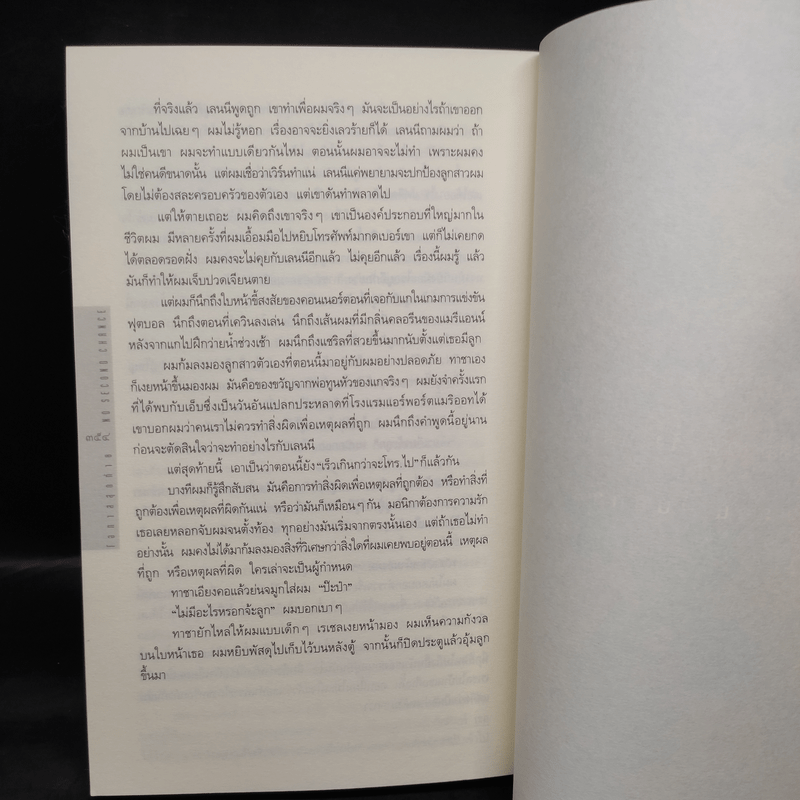 ที่จริงแล้ว เลนนีพูดถูก เขาทำเพื่อผมจริงๆ มันจะเป็นอย่างไรถ้าเขาออก
จากบ้านไปเฉยๆ ผมไม่รู้หอก เรื่องอาจจะยิ่งเลวร้ายก็ได้ เลนนีถามผมว่า ถ้า
ผมเป็นเขา ผมจะทำแบบเดียวกันไหม ตอนนั้นผมอาจจะไม่ทำ เพราะผมคง
ไม่ใช่คนดีขนาดนั้น แต่ผมเชื่อว่าเวิร์นทำแน่ เลนนีแค่พยายามจะปกป้องลูกสาวผม
โดยไม่ต้องสละครอบครัวของตัวเอง แต่เขาดันทำพลาดไป
แต่ให้ตายเถอะ ผมคิดถึงเขาจริงๆ เขาเป็นองค์ประกอบที่ใหญ่มากใน
ชีวิตผม มีหลายครั้งที่ผมเอื้อมมือไปหยิบโทรศัพท์มากดเบอร์เขา แต่ก็ไม่เคยกด
ได้ตลอดรอดฝั่ง ผมคงจะไม่คุยกับเลนนีอีกแล้ว ไม่คุยอีกแล้ว เรื่องนี้ผมรู้ แล้ว
มันก็ทำให้ผมเจ็บปวดเจียนตาย
แต่ผมก็นึกถึงใบหน้าขี้สงสัยของคอนเนอร์ตอนที่เจอกับแกในเกมการแข่งขัน
ฟุตบอล นึกถึงตอนที่เควินลงเล่น นึกถึงเส้นผมที่มีกลิ่นคลอรีนของแมรีแอนน์
หลังจากแกไปฝึกว่ายน้ำช่วงเช้า ผมนึกถึงแชริลที่สวยขึ้นมากนับตั้งแต่เธอมีลูก
ผมก้มลงมองลูกสาวตัวเองที่ตอนนี้มาอยู่กับผมอย่างปลอดภัย ทาชาเอง
ก็เงยหน้าขึ้นมองผม มันคือของขวัญจากพ่อทูนหัวของแกจริงๆ ผมยังจำครั้งแรก
ที่ได้พบกับเอ็บซึ่งเป็นวันอันแปลกประหลาดที่โรงแรมแอร์พอร์ตแมริออทได้
เขาบอกผมว่าคนเราไม่ควรทำสิ่งผิดเพื่อเหตุผลที่ถูก ผมนึกถึงคำพูดนี้อยู่นาน
ก่อนจะตัดสินใจว่าจะทำอย่างไรกับเลนนี
แต่สุดท้ายนี้ เอาเป็นว่าตอนนี้ยัง“เร็วเกินกว่าจะโทร.ไป”ก็แล้วกัน
บางทีผมก็รู้สึกสับสน มันคือการทำสิ่งผิดเพื่อเหตุผลที่ถูกต้อง หรือทำสิ่งที่
ถูกต้องเพื่อเหตุผลที่ผิดกันแน่ หรือว่ามันก็เหมือนๆ กัน มอนิกาต้องการความรัก
เธอเลยหลอกจับผมจนตั้งท้อง ทุกอย่างมันเริ่มจากตรงนั้นเอง แต่ถ้าเธอไม่ทำ
อย่างนั้น ผมคงไม่ได้มาก้มลงมองสิ่งที่วิเศษกว่าสิ่งใดที่ผมเคยพบอยู่ตอนนี้ เหตุผล
ที่ถูก หรือเหตุผลที่ผิด ใครเล่าจะเป็นผู้กำหนด
ทาชาเอียงคอแล้วย่นจมูกใส่ผม “ป๊ะป๋า”
“ไม่มีอะไรหรอกจ้ะลูก” ผมบอกเบาๆ
ทาชายักไหล่ให้ผมแบบเด็กๆ เรเชลเงยหน้ามอง ผมเห็นความกังวล
บนใบหน้าเธอ ผมหยิบพัสดุไปเก็บไว้บนหลังตู้ จากนั้นก็ปิดประตูแล้วอุ้มลูก
ขึ้นมา
๓๕๔